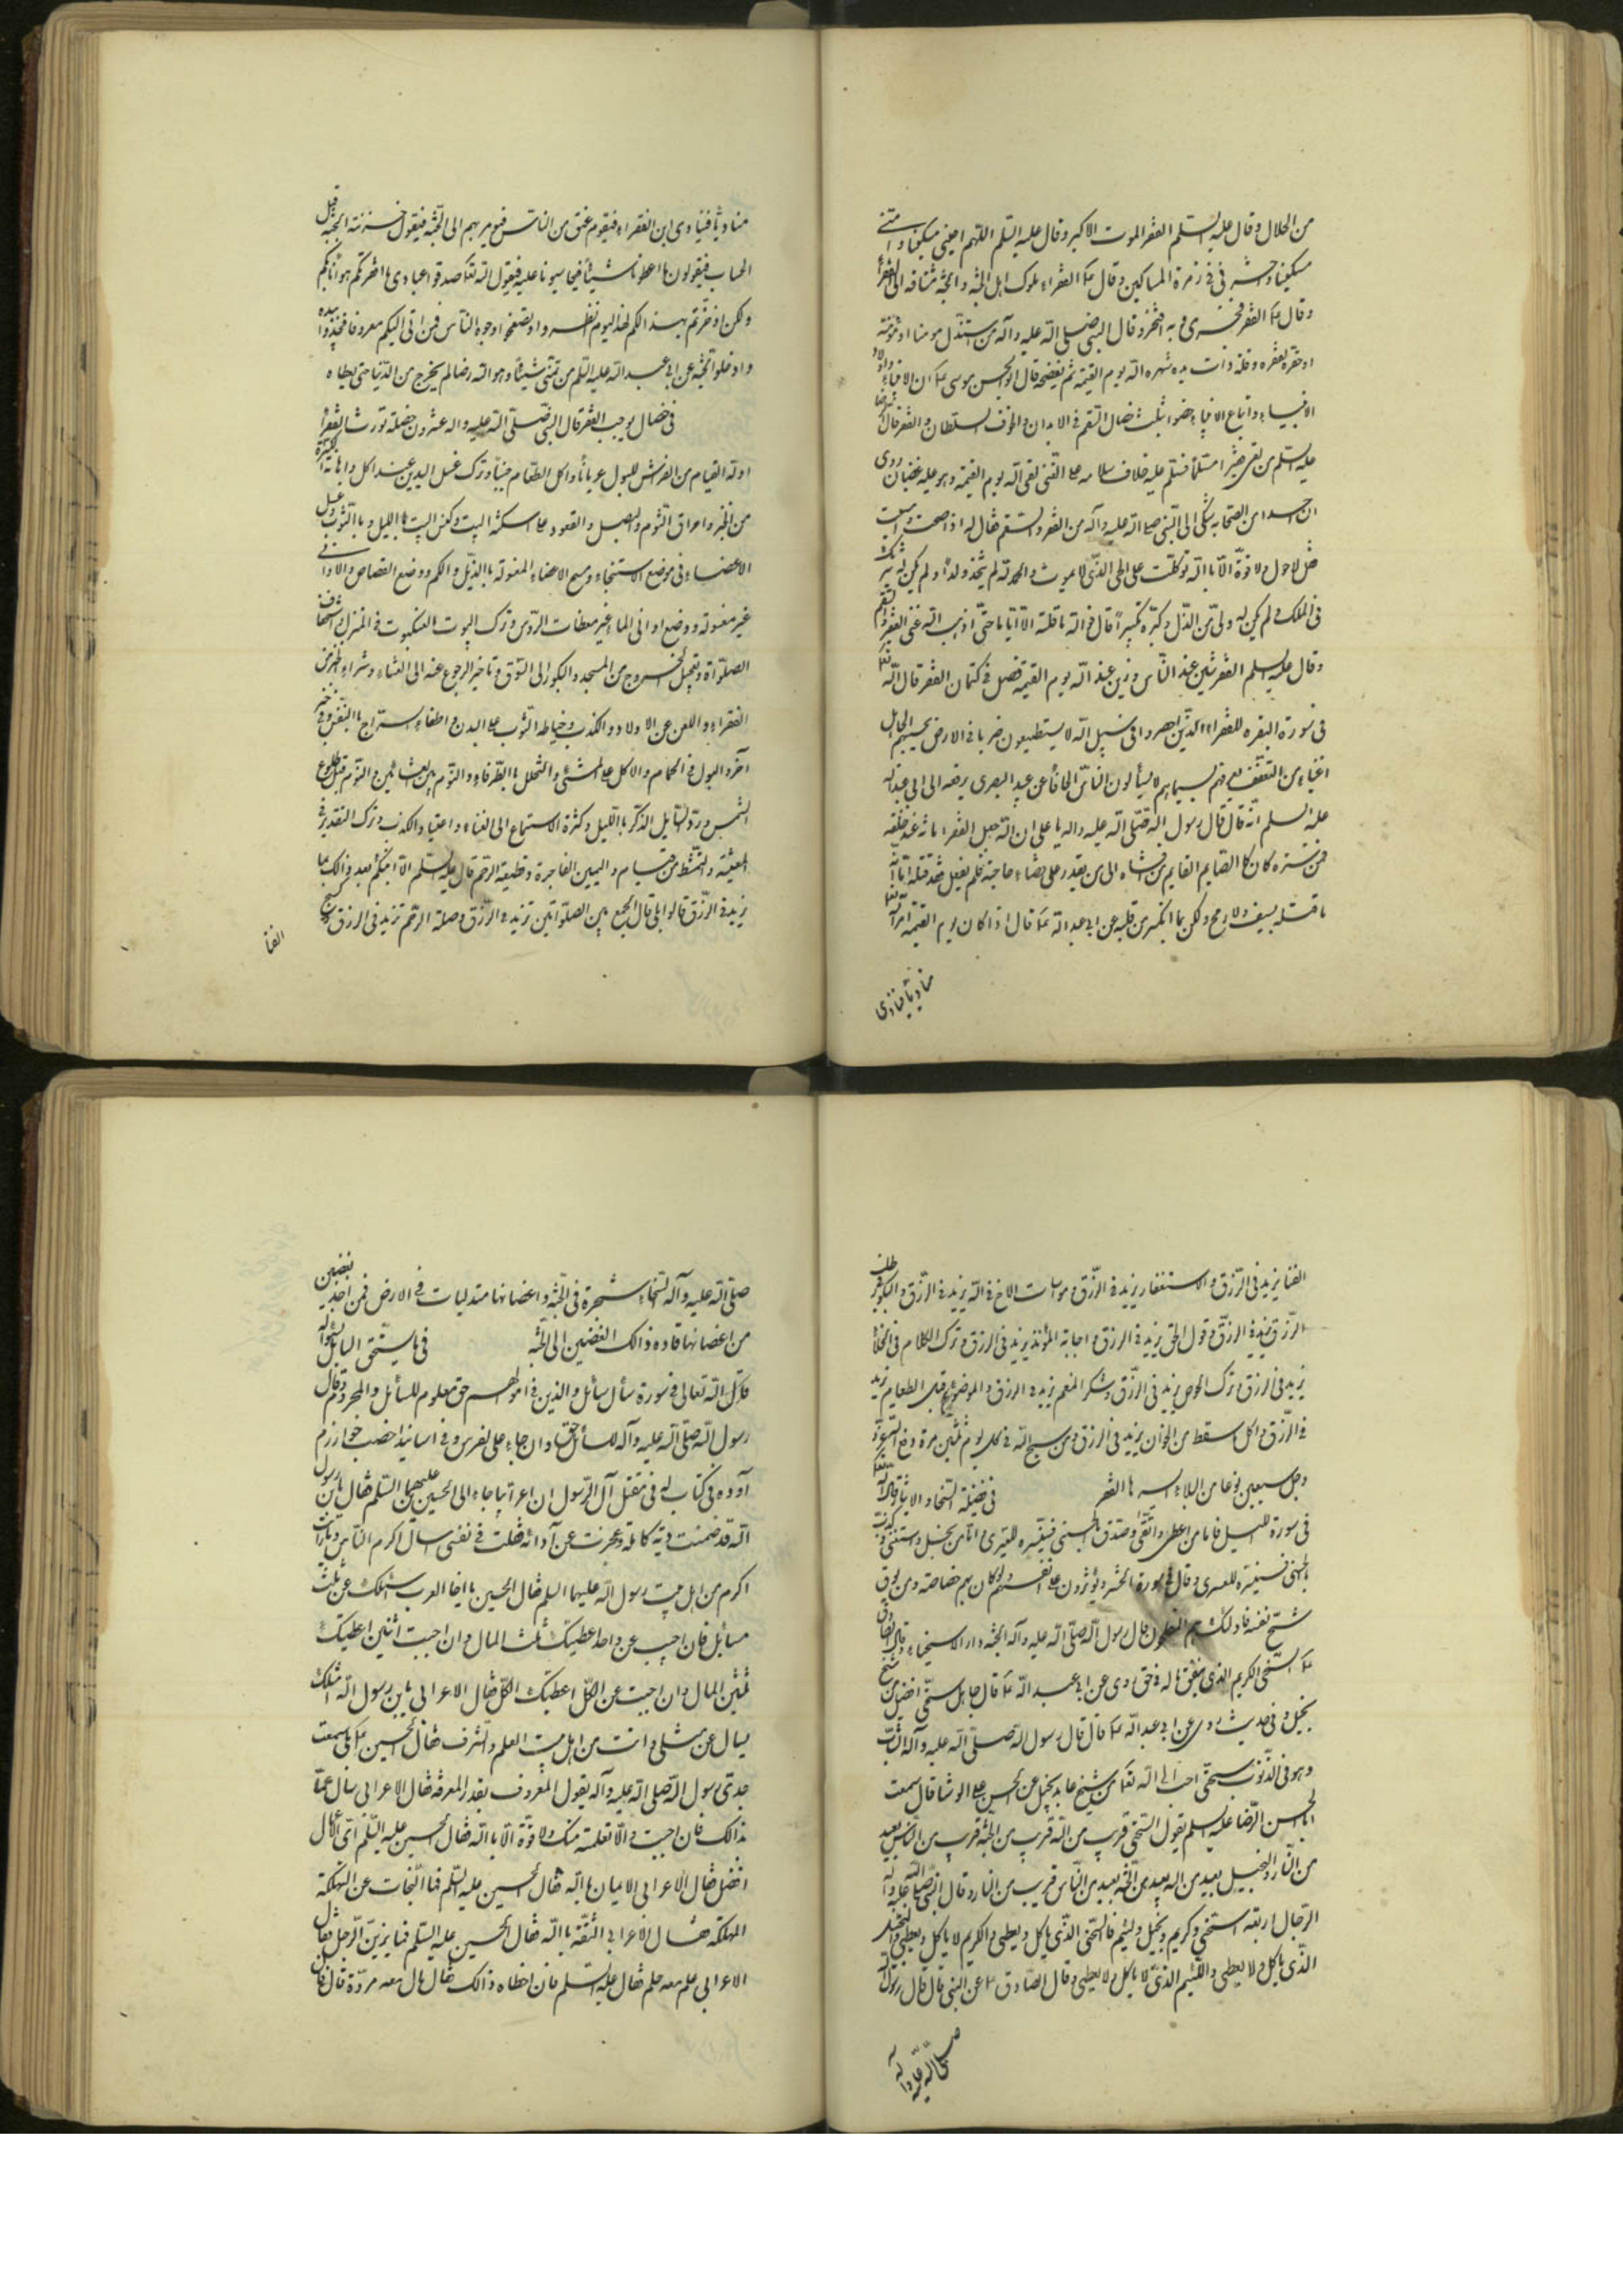 من الحلال وقال عليه السلم الفقر الموت الاكبر وقال عليه السلم اللهم احيني مسكينا وامتني
مسكينا واحشرني في زمرة المساكين وقال ع الفقراء ملوك اهل الجنة والجنة مشتاقة الى الفقراء
وقال ع الفقر فخري وبه افتخر وقال النبي صلى الله عليه وآله من استذل مومنا او مومنة
او حقره لفقره وقلة ذات يده شهره الله يوم القيمة ثم يفضحه قال ابو الحسن موسى ع ان الانبياء واولاد
الانبياء واتباع الانبياء خصوا بثلث خصال السقم في الابدان والخوف السلطان والفقر قال الرضا
عليه السلم من لقي فقيرا مسلما فسلم عليه خلاف سلامه على الغني لقى الله يوم القيمة وهو عليه غضبان روى
ان احدا من الصحابة شكى الى النبي صلى الله عليه وآله من الفقر والسقم فقال له اذا اصبحت وامسيت
قل لا حول ولا قوة الا بالله توكلت على الحي الذي لا يموت والحمد لله لم يتخذ ولدا ولم يكن له شريك
في الملك ولم يكن له ولي من الذل وكبره تكبيرا قال فوالله ما قلته الا اياما حتى اذهب الله عني الفقر والسقم
وقال عليه السلم الفقر شين عند الناس وزين عند الله يوم القيمة فصل في كتمان الفقر قال الله تعالى
في سورة البقره للفقراء الذين احصروا في سبيل الله لا يستطيعون ضربا في الارض يحسبهم الجاهل
اغنياء من التعفف تعرفهم بسيماهم لا يسألون الناس الحافا عن عبيد البصري يرفعه الى ابي عبد الله
عليه السلم انه قال قال رسول الله صلى الله عليه واله يا علي ان الله جعل الفقر امانة عند خلقه
فمن ستره كان كالصايم القايم ومن افشاه الى من يقدر على قضاء حاجته فلم يفعل فقد قتله اما انه
ما قتله بسيف ولا رمح ولكن بما انكسر من قلبه عن ابي عبد الله ع قال اذا كان يوم القيمة امر الله تعالى
مناديا فينادي
مناديا فينادي اين الفقراء فيقوم عنق من الناس فيومر بهم الى الجنة فيقول خزنة الجنة قبل
الحساب فيقولون ما اعطونا شيئا فيحاسبونا عليه فيقول الله تعالى صدقوا عبادي ما افقرتكم هوانا بكم
ولكن ادخرتكم بهذا لكم لهذا اليوم انظروا وتصفحوا وجوه الناس فمن اتى اليكم معروفا فخذوا بيده
وادخلوا الجنة عن ابي عبد الله عليه السلم من تمنى شيئا وهو لله رضا لم يخرج من الدنيا حتى يعطاه
في خصال يوجب الفقر قال النبي صلى الله عليه واله عشرون خصلة تورث الفقر
اوله القيام من الفراش للبول عريانا واكل الطعام جنبا وترك غسل اليدين عند الاكل واهانة الكسرة
من الخبز واحراق الثوم والبصل والقعود على اسكفة البيت وكنس البيت بالليل وبالثوب وغسل
الاعضاء في موضع الاستنجاء ومسح الاعضاء المغسولة بالذيل والكم ووضع القصاص والاواني
غير مغسولة ووضع اواني الماء غير مغطات الروس وترك البيوت العنكبوت في المنزل واستخفاف
الصلوة وتعجيل الخروج من المسجد والبكور الى السوق وتاخير الرجوع عنه الى العشاء وشراء الخبز من
الفقراء واللعن عن الاولاد والكذب وخياطة الثوب على البدن واطفاء السراج بالنفس وفي خبر
آخر والبول في الحمام والاكل على المشئ والتخلل بالطرفاء والنوم بين العشائين والنوم قبل طلوع
الشمس ورد السايل الذكر بالليل وكثرة الاستماع الى الغناء واعتياد الكذب وترك التقدير في
المعيشة والتمشط من قيام واليمين الفاجرة وقطيعة الرحم قال عليه السلم الا انبئكم بعد ذالك بما
يزيد في الرزق قالوا بلى قال الجمع بين الصلوتين تزيد في الرزق وصلة الرحم تزيد في الرزق وكسح
الفنا
الفنا يزيد في الرزق والاستغفار يزيد في الرزق ومواسات الاخ في الله يزيد في الرزق والبكور في طلب
الرزق يزيد في الرزق وقول الحق يزيد في الرزق واجابة المؤذن يزيد في الرزق وترك الكلام في الخلا
يزيد في الرزق وترك الحرص يزيد في الرزق وشكر المنعم يزيد في الرزق والوضوء قبل الطعام يزيد
في الرزق واكل ما سقط من الخوان يزيد في الرزق ومن سبح الله في كل يوم ثلثين مرة دفع الله عز و
وجل سبعين نوعا من البلاء ايسرها الفقر في فضيلة السخاء والايثار قال الله تعالى
في سورة الليل فاما من اعطى واتقى وصدق بالحسنى فسنيسره لليسرى واما من بخل واستغنى وكذب
بالحسنى فسنيسره للعسرى وقال في سورة الحشر ويؤثرون على انفسهم ولو كان بهم خصاصة ومن يوق
شح نفسه فاولئك هم المفلحون قال رسول الله صلى الله عليه وآله الجنة دار الاسخياء وقال الصادق
ع السخي الكريم الذي ينفق ماله في حق روى عن ابي عبد الله ع قال جاهل سخي افضل من شيخ
بخيل وفي حديث روى عن ابي عبد الله ع قال قال رسول الله صلى الله عليه وآله الشاب
وهو في الذنوب سخي احب الى الله تعالى من شيخ عابد بخيل عن الحسن بن علي الوشا قال سمعت
ابا الحسن الرضا عليه السلم يقول السخي قريب من الله قريب من الجنة قريب من الناس بعيد
من النار والبخيل بعيد من الله بعيد من الجنة بعيد من الناس قريب من النار وقال النبي صلى الله عليه وآله
الرجال اربعة سخي وكريم وبخيل ولئيم فالسخي الذي ياكل ويعطي والكريم لا ياكل ويعطي والبخيل
الذي ياكل ولا يعطي واللئيم الذي لا ياكل ولا يعطي وقال الصادق ع عن النبي قال قال رسول الله
صلى الله عليه وآله
صلى الله عليه وآله السخاء شجرة في الجنة واغصانها متدليات في الارض فمن اخذ بغصن
من اغصانها قاده ذالك الغصن الى الجنة في ما يستحق السايل بسؤاله
قال الله تعالى في سورة سأل سائل والذين في اموالهم حق معلوم للسائل والمحروم وقال
رسول الله صلى الله عليه وآله للسائل حق وان جاء على الفرس وفي اسانيد اخطب خوارزم
آورده في كتاب له في مقتل آل الرسول ان اعرابيا جاء الى الحسين بن علي عليهما السلم فقال يا بن رسول
الله قد ضمنت دية كاملة وعجزت عن آدائه فقلت في نفسي سال اكرم الناس وما رايت
اكرم من اهل بيت رسول الله عليهما السلم فقال الحسين يا اخا العرب اسئلك عن ثلث
مسائل فان اجبت عن واحد اعطيتك ثلث المال وان اجبت اثنين اعطيتك
ثلثين المال وان اجبت عن الكل اعطيتك الكل فقال الاعرابي يا بن رسول الله امثلك
يسال عن مثلي وانت من اهل بيت العلم والشرف فقال الحسين ع بلى سمعت
جدي رسول الله صلى الله عليه وآله يقول المعروف بقدر المعرفة فقال الاعرابي سل عما
بدالك فان اجبت والا تعلمت منك ولا قوة الا بالله فقال الحسين عليه السلم اي الاعمال
افضل فقال الاعرابي الايمان بالله فقال الحسين عليه السلم فما النجات عن الهلكة
المهلكة فقال الاعرابي الثقة بالله فقال الحسين عليه السلم فما يزين الرجل فقال
الاعرابي علم معه حلم فقال عليه السلم فان اخطاه ذالك فقال مال معه مروة قال فان